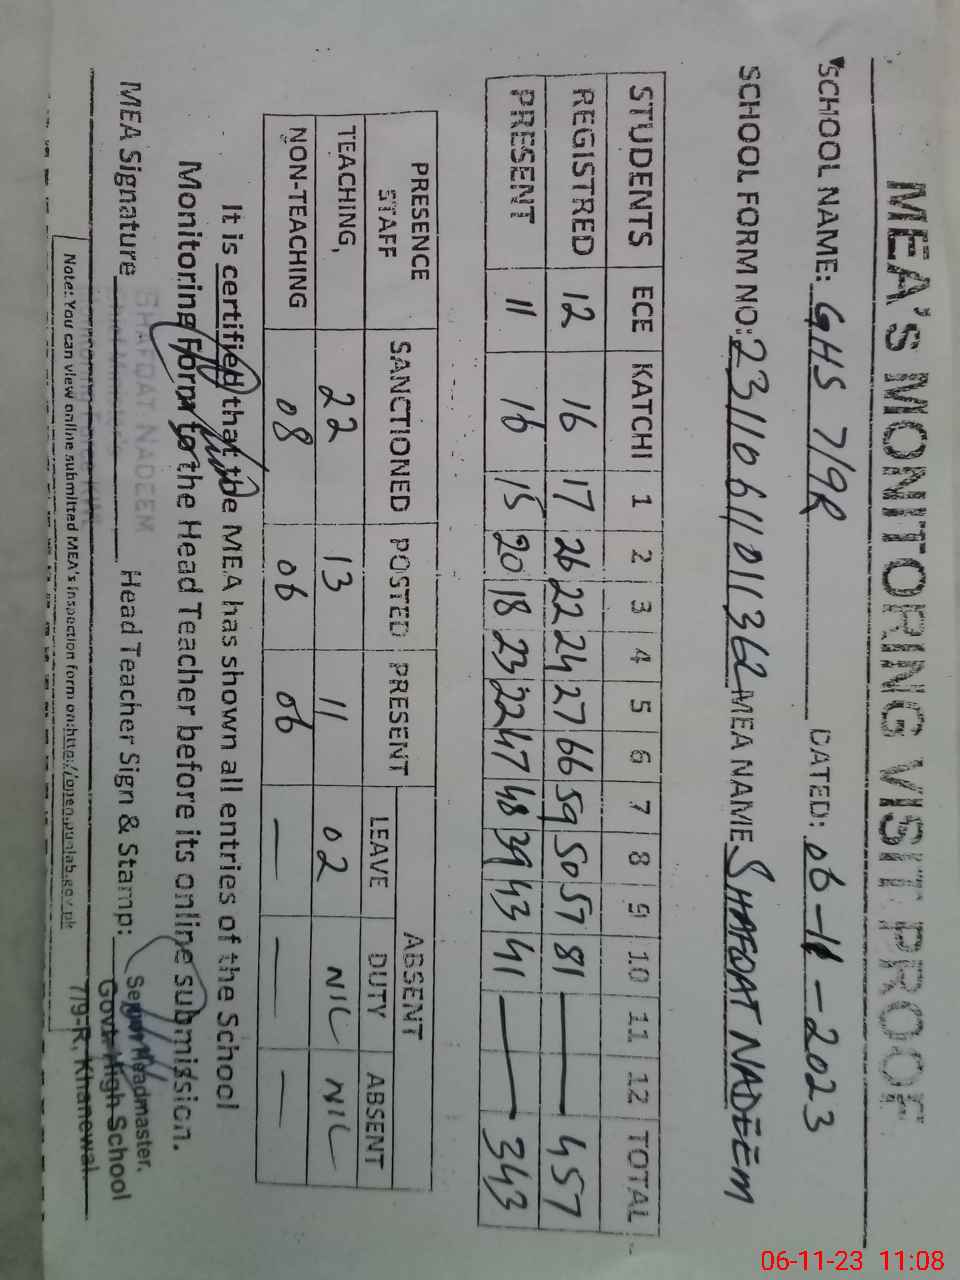 MEA'S MONITORING VISIT PROOF
SCHOOL NAME: GHS 7/9R DATED: 06-11-2023
SCHOOL FORM NO: 2311061101362 MEA NAME SHAFQAT NADEEM
STUDENTS ECE KATCHI 1 2 3 4 5 6 7 8 9 10 11 12 TOTAL
REGISTRED 12 16 17 26 22 24 27 66 59 50 57 81 — 457
PRESENT 11 16 15 20 18 23 22 47 48 39 43 41 — 343
PRESENCE STAFF SANCTIONED POSTED PRESENT ABSENT
LEAVE DUTY ABSENT
TEACHING, 22 13 11 02 NIL NIL
NON-TEACHING 08 06 06 — — —
It is certified that the MEA has shown all entries of the School
Monitoring Form to the Head Teacher before its online submission.
SHAFQAT NADEEM
MEA Signature Head Teacher Sign & Stamp:
Senior Headmaster.
Govt. High School
7/9-R, Khanewal
Note: You can view online submitted MEA's inspection form on:http://open.punjab.gov.pk
06-11-23 11:08